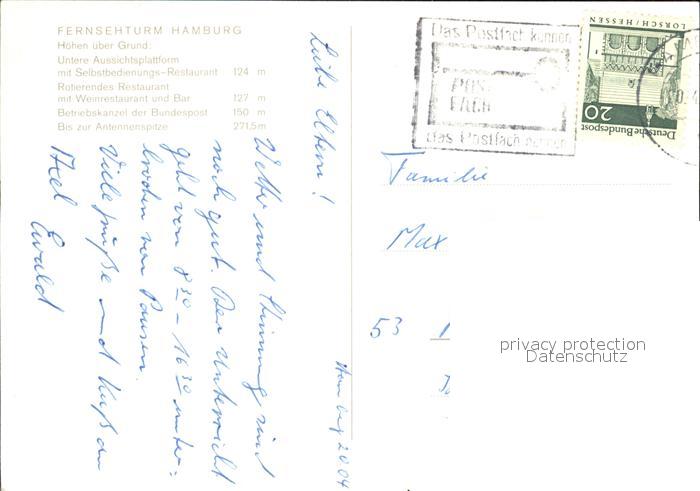 FERNSEHTURM HAMBURG
Höhen über Grund:
Untere Aussichtsplattform
mit Selbstbedienungs-Restaurant 124 m
Rotierendes Restaurant
mit Weinrestaurant und Bar 127 m
Betriebskanzel der Bundespost 150 m
Bis zur Antennenspitze 271,5m
Hamburg 20 04
Liebe Eltern!
Wetter und Stimmung sind
noch gut. Der Unterricht
geht von 8 30 - 16 30 unter=
brochen von Pausen.
Viele Grüße und Kuß an
Axel Ewald
Das Postfach kennen
POST
FACH
das Postfach nennen
LORSCH/HESSEN
Deutsche Bundespost
20
Familie
Max
53
privacy protection
Datenschutz